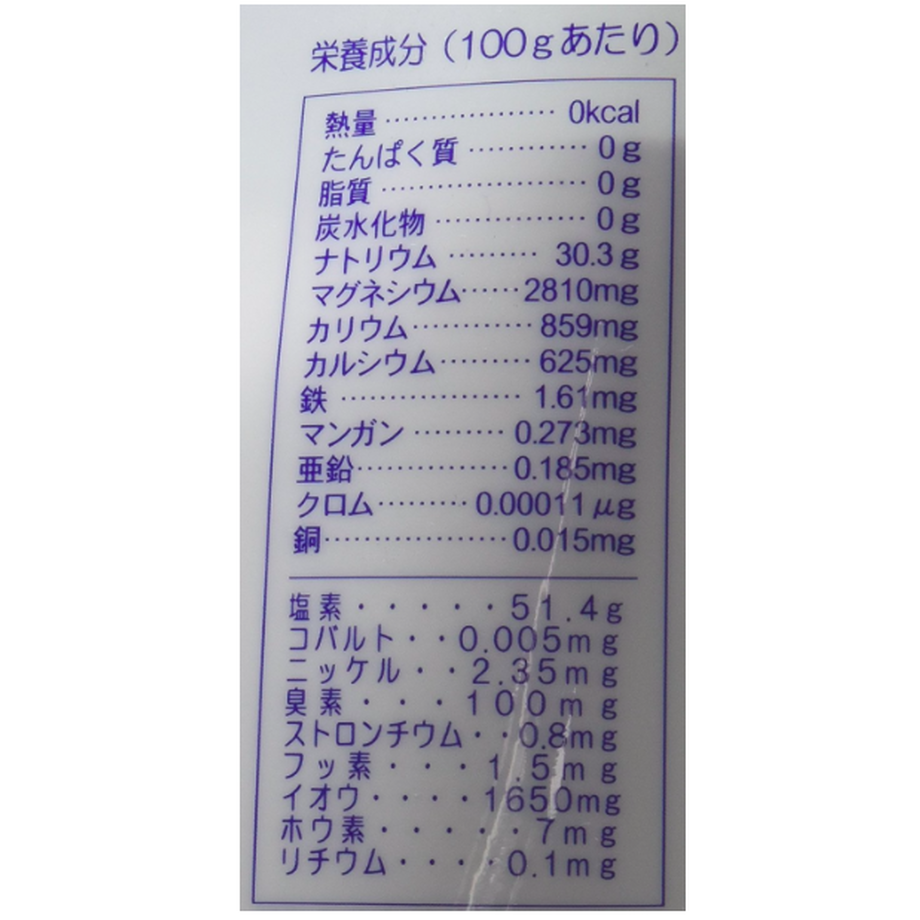 栄養成分（100gあたり）
熱量………………0kcal
たんぱく質…………0g
脂質…………………0g
炭水化物……………0g
ナトリウム………30.3g
マグネシウム……2810mg
カリウム…………859mg
カルシウム………625mg
鉄………………1.61mg
マンガン………0.273mg
亜鉛……………0.185mg
クロム………0.00011μg
銅………………0.015mg
塩素・・・・・51.4g
コバルト・・0.005mg
ニッケル・・2.35mg
臭素・・・・100mg
ストロンチウム・・0.8mg
フッ素・・・・1.5mg
イオウ・・・・1650mg
ホウ素・・・・・7mg
リチウム・・・・0.1mg